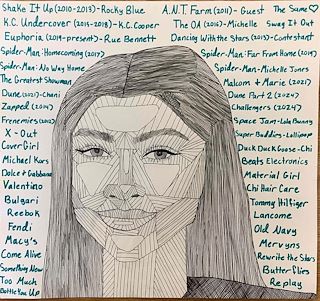 Shake It Up (2010-2013)-Rocky Blue
K.C. Undercover (2015-2018)-K.C. Cooper
Euphoria (2019-present)-Rue Bennett
Spider-Man: Homecoming (2017)
Spider-Man: No Way Home
The Greatest Showman
Dune (2021)-Chani
Zapped (2014)
Frenemies (2012)
X-Out
CoverGirl
Michael Kors
Dolce + Gabbana
Valentino
Bulgari
Reebok
Fendi
Macy's
Come Alive
Something New
Too Much
Bottle You Up
A.N.T. Farm (2011)-Guest
The Same
The OA (2016)-Michelle
Swag It Out
Dancing With the Stars (2013)-Contestant
Spider-Man: Far From Home (2019)
Spider-Man-Michelle Jones
Malcom + Marie (2021)
Dune Part 2 (2024)
Challengers (2024)
Space Jam-Lola Bunny
Super Buddies-Lollipop
Duck Duck Goose-Chi
Beats Electronics
Material Girl
Chi Hair Care
Tommy Hilfiger
Lancome
Old Navy
Mervyns
Rewrite the Stars
Butterflies
Replay